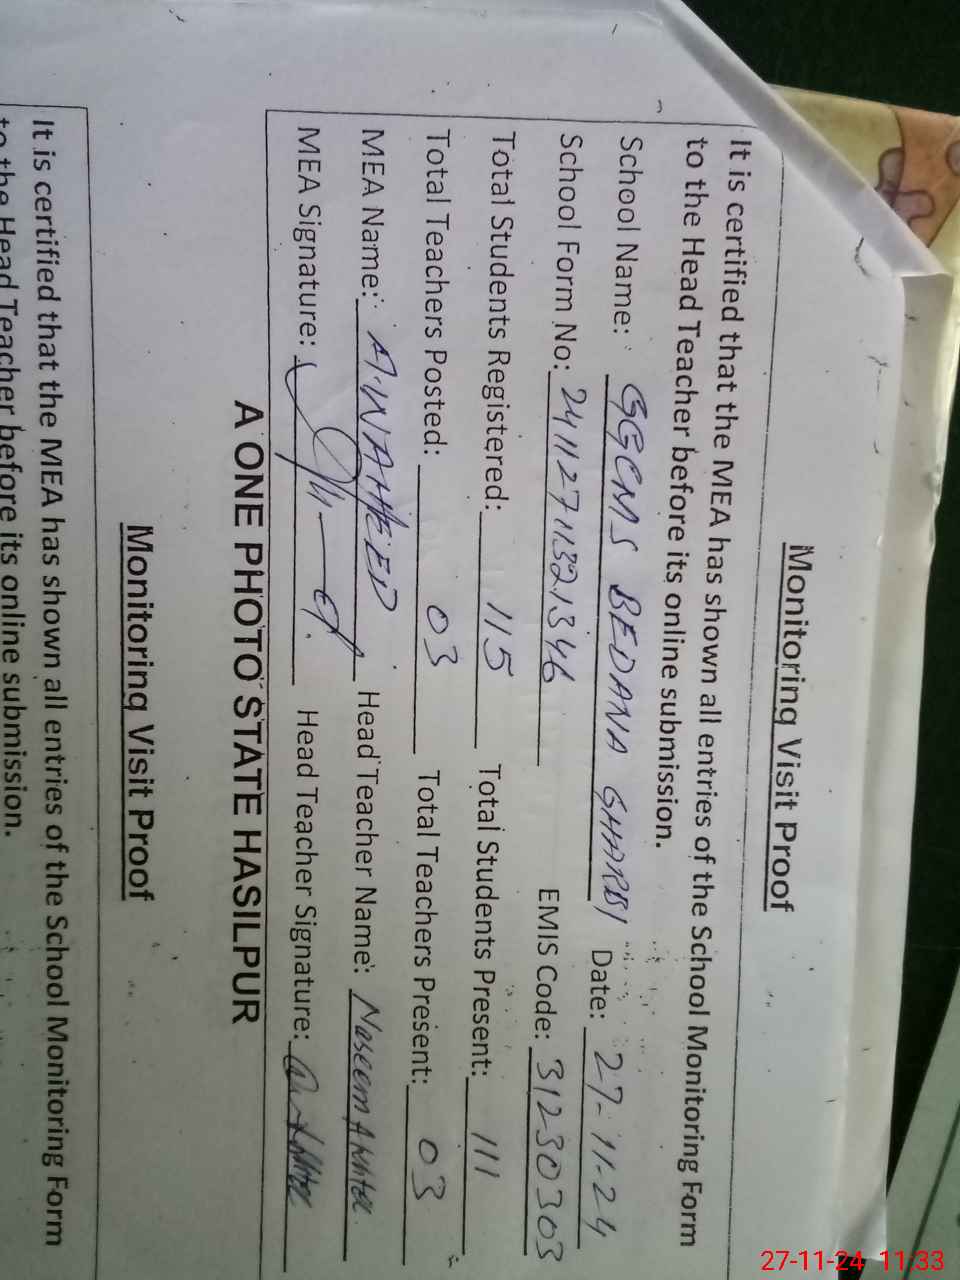 Monitoring Visit Proof
It is certified that the MEA has shown all entries of the School Monitoring Form
to the Head Teacher before its online submission.
School Name: GGCMS BEDANA GHARBI Date: 27-11-24
School Form No: 24112711321346 EMIS Code: 31230303
Total Students Registered: 115 Total Students Present: 111
Total Teachers Posted: 03 Total Teachers Present: 03
MEA Name: A.WAHEED Head Teacher Name: Naseem Akhtar
MEA Signature: Head Teacher Signature:
A ONE PHOTO STATE HASILPUR
Monitoring Visit Proof
It is certified that the MEA has shown all entries of the School Monitoring Form
to the Head Teacher before its online submission.
27-11-24 11:33